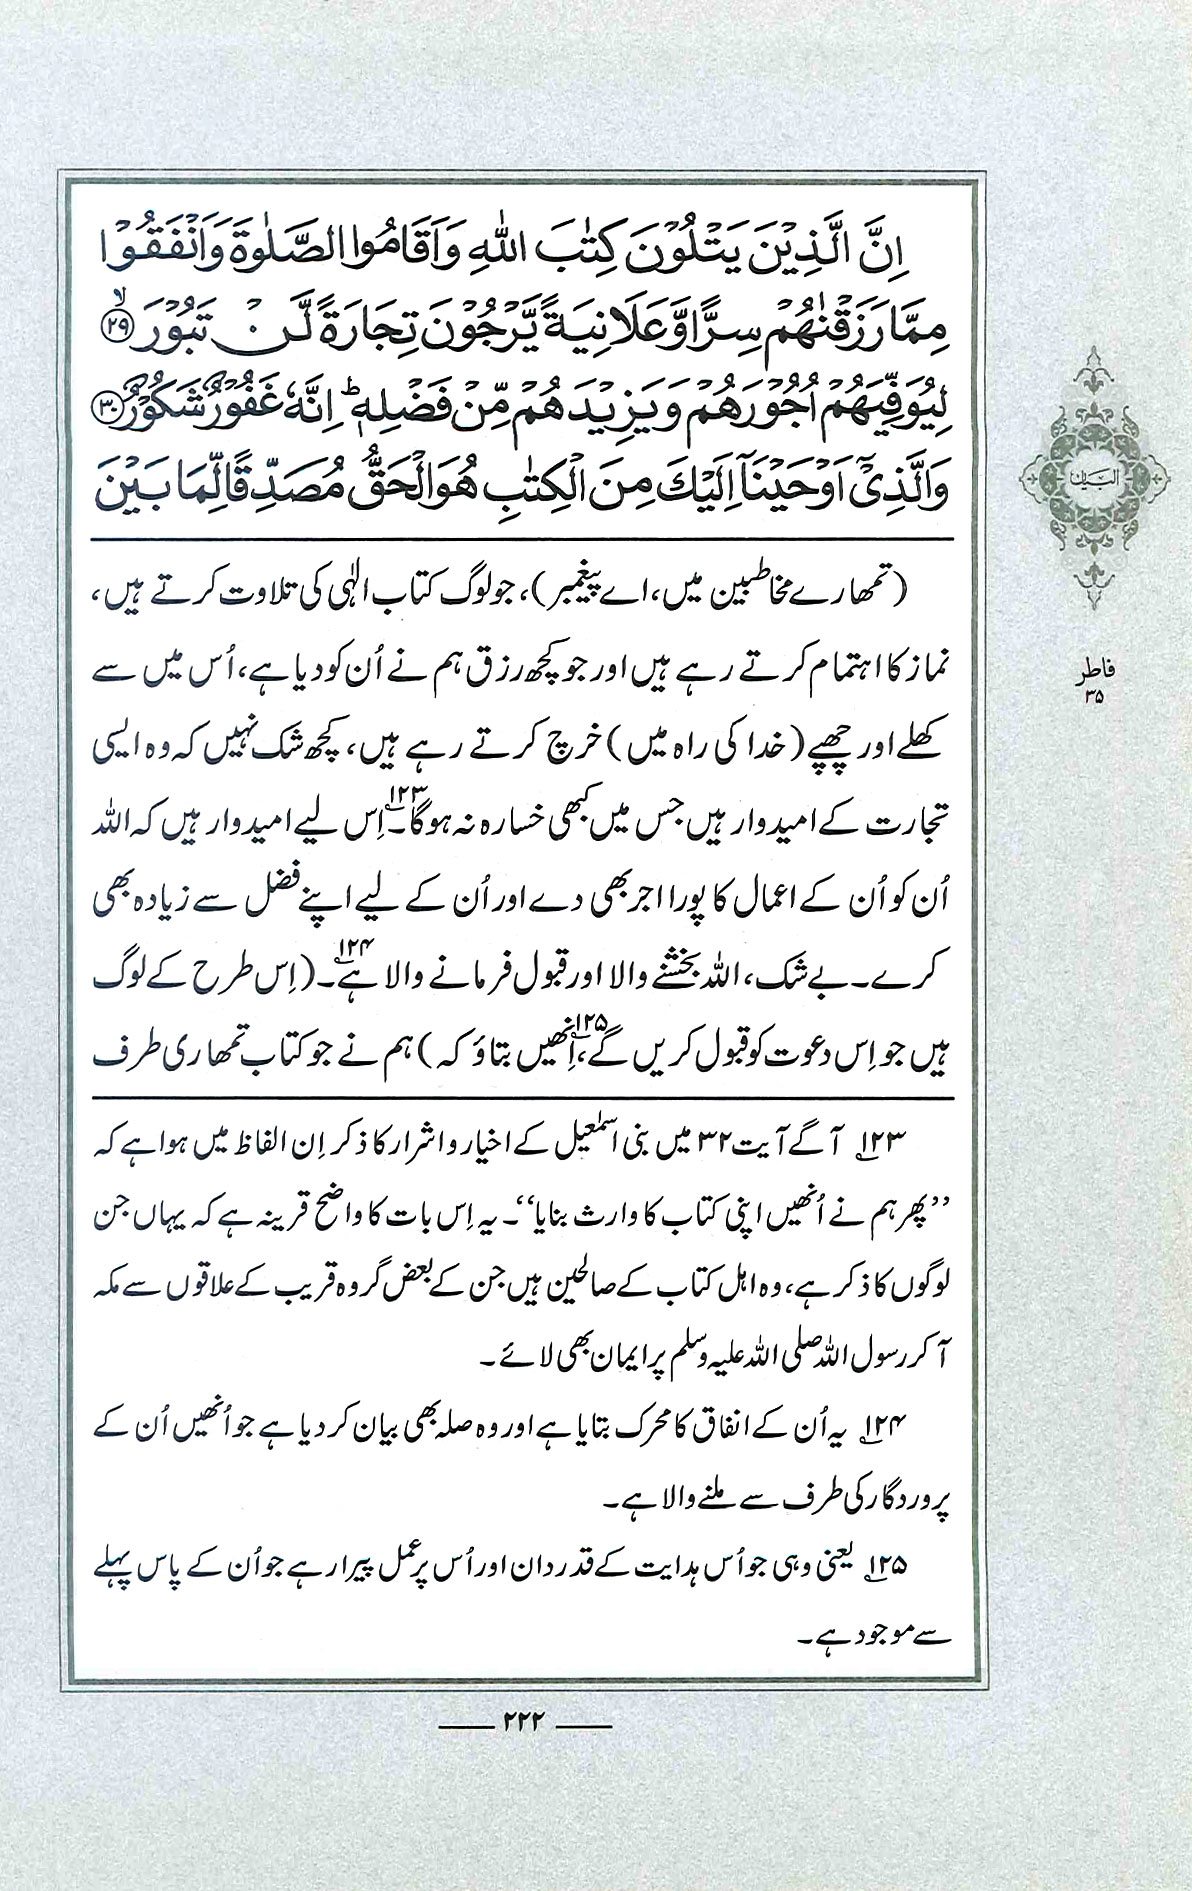 اِنَّ الَّذِيْنَ يَتْلُوْنَ كِتٰبَ اللّٰهِ وَاَقَامُوا الصَّلٰوةَ وَاَنْفَقُوْا
مِمَّا رَزَقْنٰهُمْ سِرًّا وَّعَلَانِيَةً يَّرْجُوْنَ تِجَارَةً لَّنْ تَبُوْرَ ﴿۲۹﴾ۙ
لِيُوَفِّيَهُمْ اُجُوْرَهُمْ وَيَزِيْدَهُمْ مِّنْ فَضْلِهٖ ؕ اِنَّهٗ غَفُوْرٌ شَكُوْرٌ ﴿۳۰﴾
وَالَّذِيْٓ اَوْحَيْنَآ اِلَيْكَ مِنَ الْكِتٰبِ هُوَ الْحَقُّ مُصَدِّقًا لِّمَا بَيْنَ
(تمھارے مخاطبین میں، اے پیغمبر)، جو لوگ کتاب الٰہی کی تلاوت کرتے ہیں،
نماز کا اہتمام کرتے رہے ہیں اور جو کچھ رزق ہم نے اُن کو دیا ہے، اُس میں سے
کھلے اور چھپے (خدا کی راہ میں) خرچ کرتے رہے ہیں، کچھ شک نہیں کہ وہ ایسی
تجارت کے امیدوار ہیں جس میں کبھی خسارہ نہ ہوگا۔۱۲۳ اِس لیے امیدوار ہیں کہ اللہ
اُن کو اُن کے اعمال کا پورا اجر بھی دے اور اُن کے لیے اپنے فضل سے زیادہ بھی
کرے۔ بے شک، اللہ بخشنے والا اور قبول فرمانے والا ہے۔۱۲۴ (اِس طرح کے لوگ
ہیں جو اِس دعوت کو قبول کریں گے،۱۲۵ اِنھیں بتاؤ کہ) ہم نے جو کتاب تمھاری طرف
۱۲۳ آگے آیت ۳۲ میں بنی اسمٰعیل کے اخیار و اشرار کا ذکر اِن الفاظ میں ہوا ہے کہ
’’پھر ہم نے اُنھیں اپنی کتاب کا وارث بنایا‘‘۔ یہ اِس بات کا واضح قرینہ ہے کہ یہاں جن
لوگوں کا ذکر ہے، وہ اہل کتاب کے صالحین ہیں جن کے بعض گروہ قریب کے علاقوں سے مکہ
آ کر رسول اللہ صلی اللہ علیہ وسلم پر ایمان بھی لائے۔
۱۲۴ یہ اُن کے انفاق کا محرک بتایا ہے اور وہ صلہ بھی بیان کر دیا ہے جو اُنھیں اُن کے
پروردگار کی طرف سے ملنے والا ہے۔
۱۲۵ یعنی وہی جو اُس ہدایت کے قدردان اور اُس پر عمل پیرا رہے جو اُن کے پاس پہلے
سے موجود ہے۔
۲۲۲
البیان
فاطر
۳۵